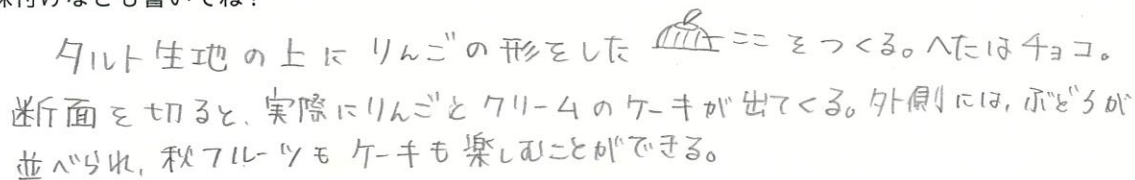 味付けなども書いてね！
タルト生地の上にりんごの形をした ここをつくる。へたはチョコ。
断面を切ると、実際にりんごとクリームのケーキが出てくる。外側には、ぶどうが
並べられ、秋フルーツもケーキも楽しむことができる。